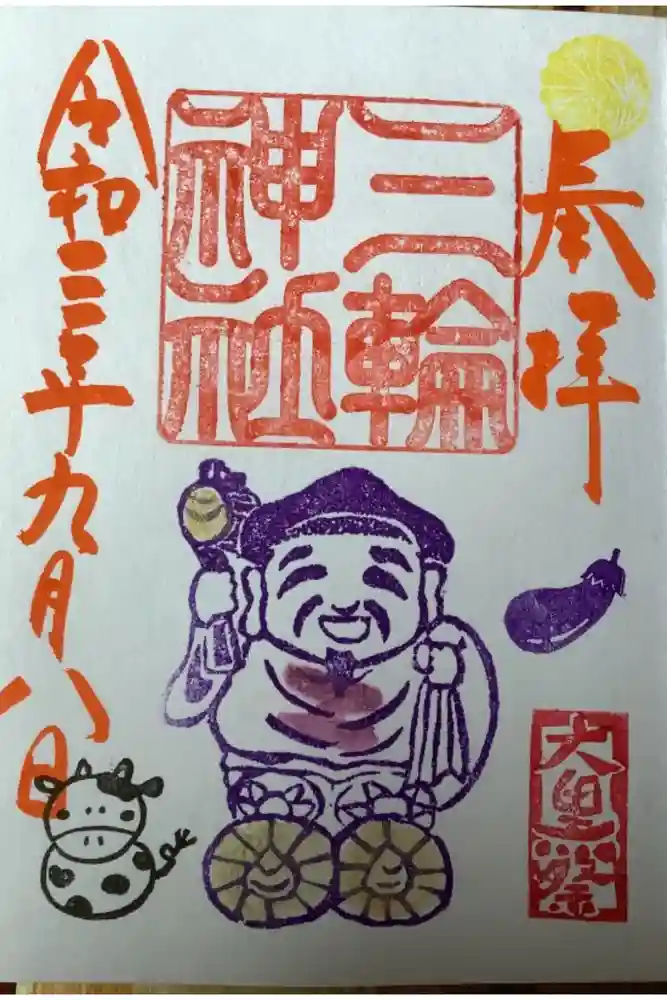 奉拝
三輪
神社
大黒祭
令和三年九月八日